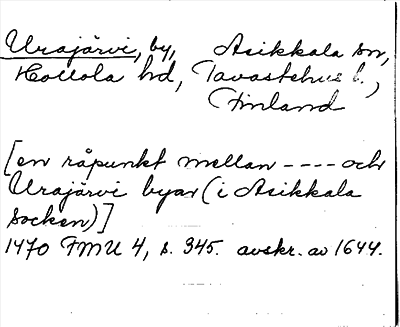 Urajärvi, by, Asikkala sn,
Hollola hd, Tavastehus l.,
Finland
[en råpunkt mellan ---- och
Urajärvi byar (i Asikkala
socken)]
1470 FMU 4, s. 345. avskr. av 1644.